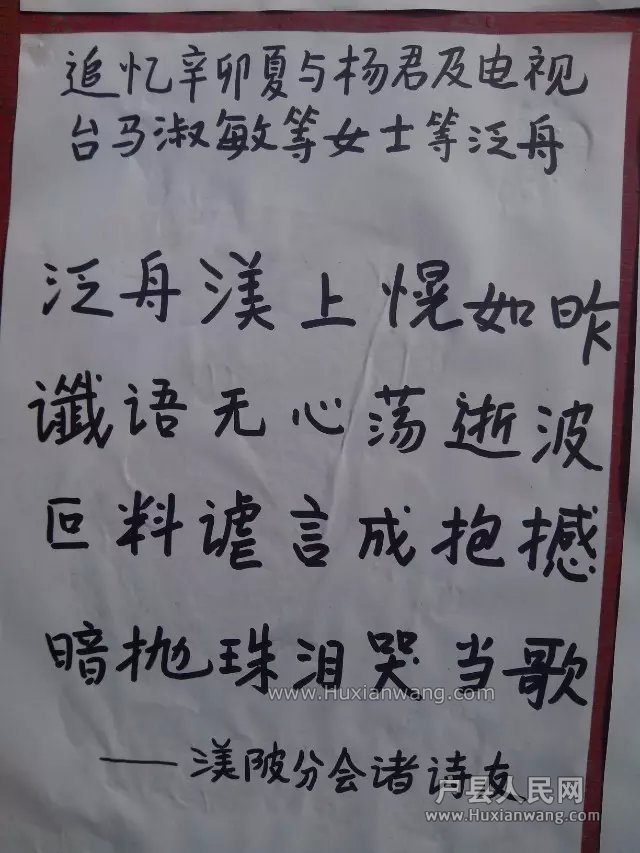 追忆辛卯夏与杨君及电视
台马淑敏等女士等泛舟
泛舟渼上幌如昨
谶语无心荡逝波
叵料谑言成抱撼
暗抛珠泪哭当歌
www.Huxianwang.com
——渼陂分会诸诗友
户县人民网
www.Huxianwang.com